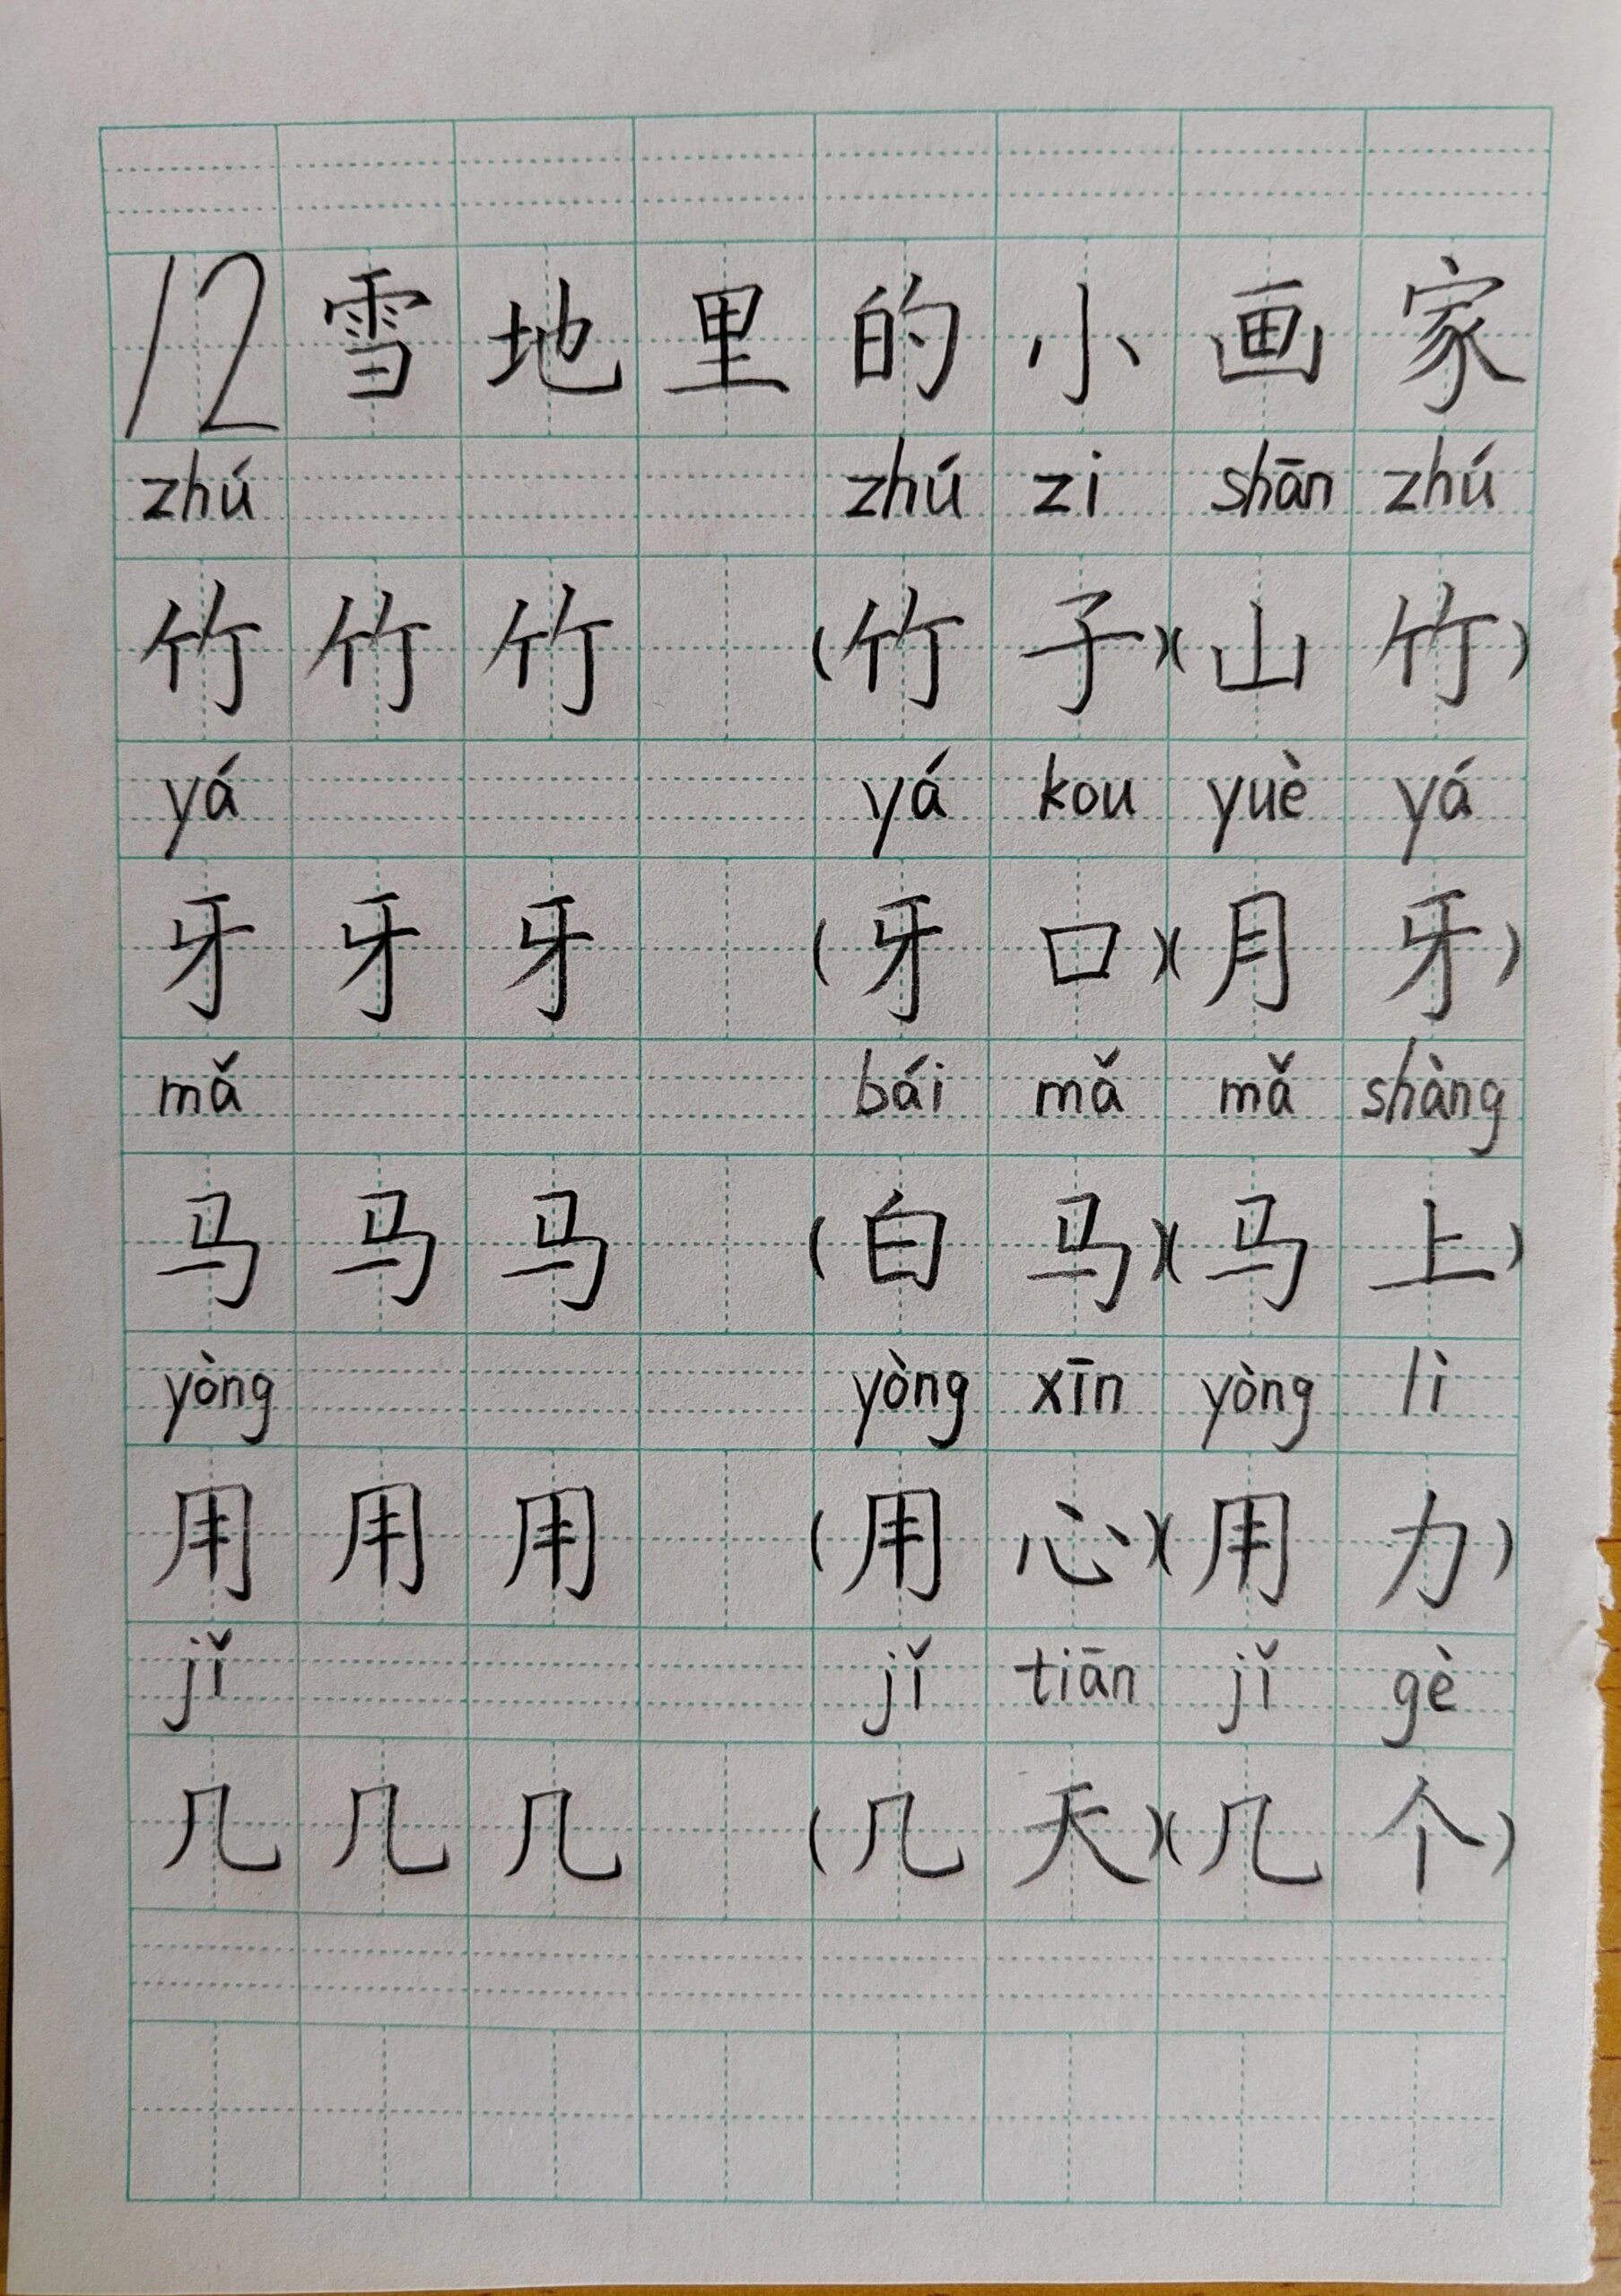 12雪地里的小画家
zhú zhú zi shān zhú
竹竹竹(竹子)(山竹)
yá yá kou yuè yá
牙牙牙(牙口)(月牙)
mǎ bái mǎ mǎ shàng
马马马(白马)(马上)
yòng yòng xīn yòng lì
用用用(用心)(用力)
jǐ jǐ tiān jǐ gè
几几几(几天)(几个)